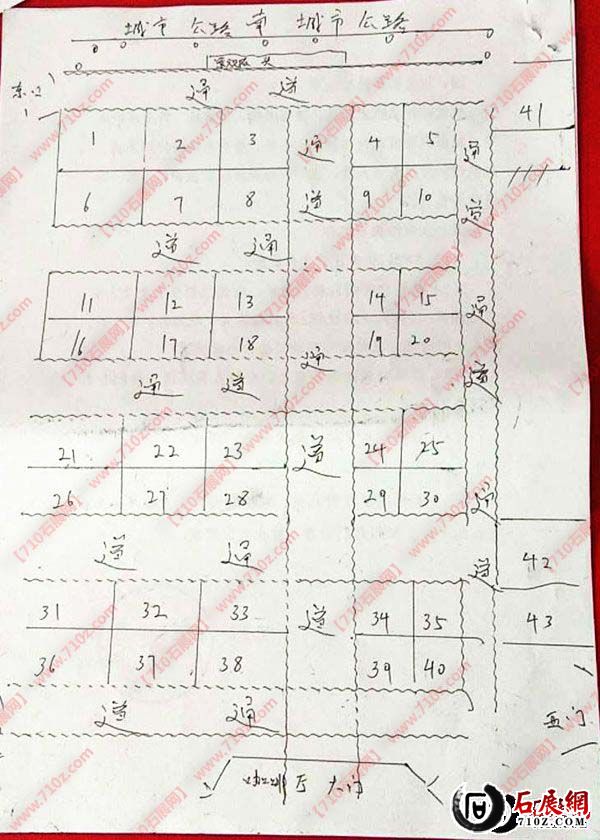 城市 公路 南 城市 公路
通 道
1 2 3 4 5
通 通
6 7 8 9 10
道 道
道 通
11 12 13 14 15
通
16 17 18 19 20
通
通 道
道
21 22 23 24 25
道
26 27 28 29 30
通
道 通
道
31 32 33 34 35
道
36 37 38 39 40
道 通
41
42
43
西门
大门
【710石展网】www.710z.com
石展網
710Z.COM